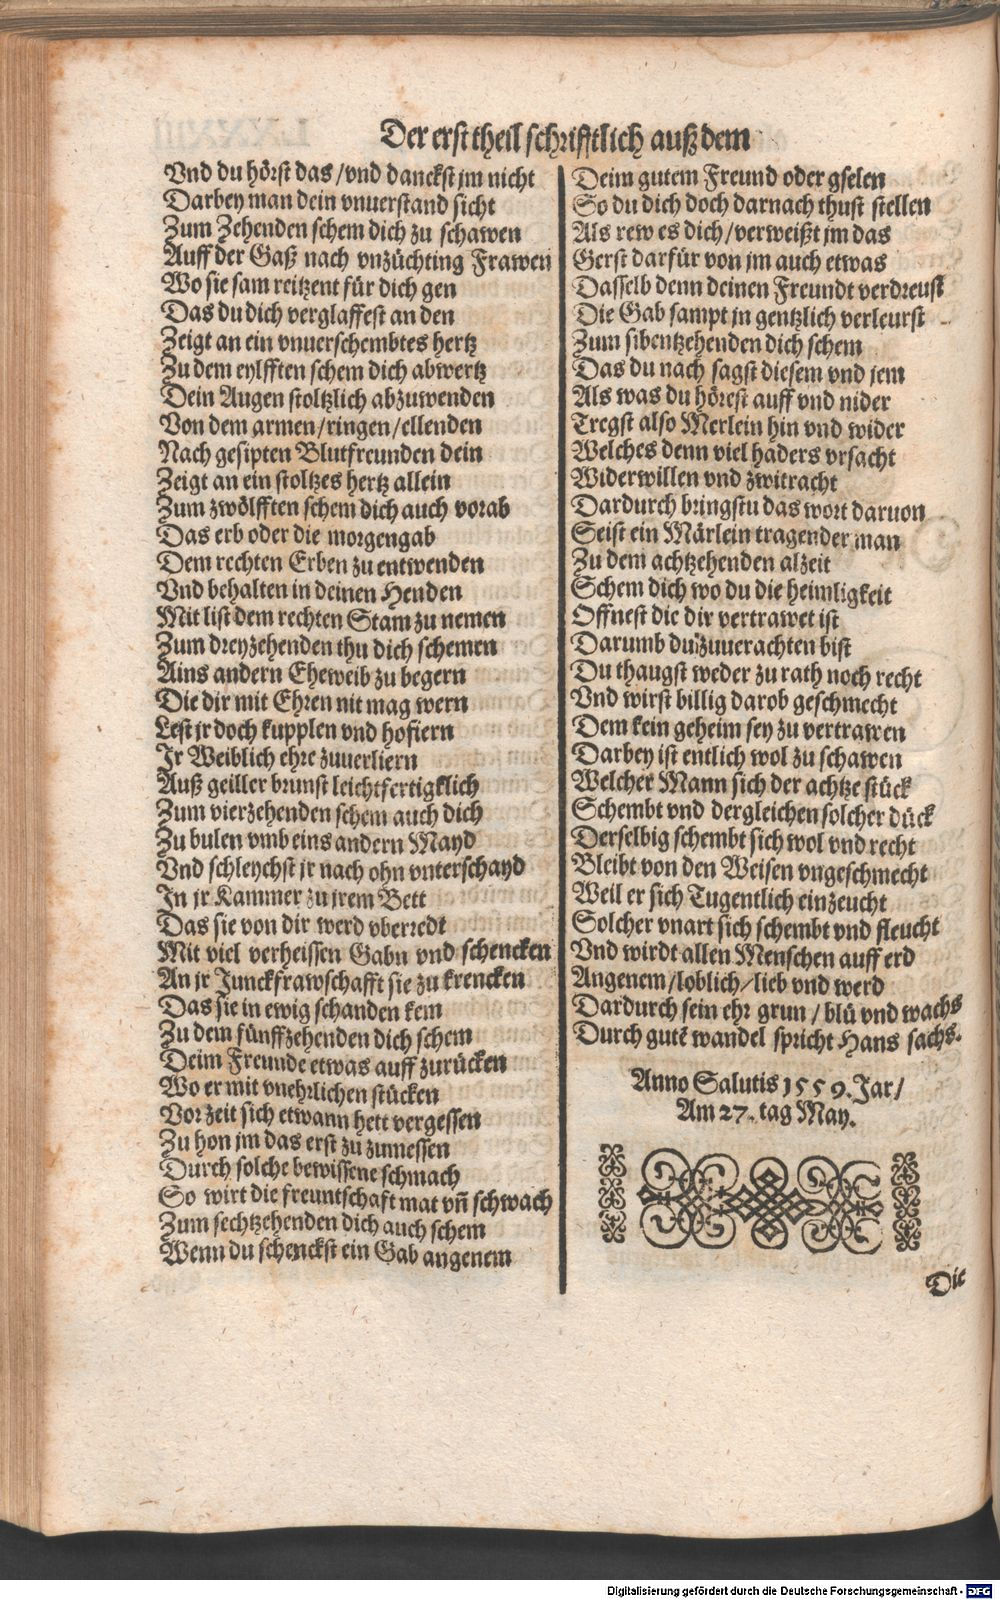 Der erst theil schrifftlich auß dem
Vnd du hörst das/vnd danckst jm nicht
Darbey man dein vnuerstand sicht
Zum Zehenden schem dich zu schawen
Auff der Gaß nach vnzüchting Frawen
Wo sie sam reitzent für dich gen
Das du dich verglaffest an den
Zeigt an ein vnuerschembtes hertz
Zu dem eylfften schem dich abwertz
Dein Augen stoltzlich abzuwenden
Von dem armen/ringen/ellenden
Nach gesipten Blutfreunden dein
Zeigt an ein stoltzes hertz allein
Zum zwölfften schem dich auch vorab
Das erb oder die morgengab
Dem rechten Erben zu entwenden
Vnd behalten in deinen Henden
Mit list dem rechten Stam zu nemen
Zum dreyzehenden thu dich schemen
Ains andern Eheweib zu begern
Die dir mit Ehren nit mag wern
Lest jr doch kupplen vnd hofiern
Jr Weiblich ehre zuuerliern
Auß geiller brunst leichtfertigklich
Zum vierzehenden schem auch dich
Zu bulen vmb eins andern Mayd
Vnd schleychst jr nach ohn vnterschayd
In jr Kammer zu jrem Bett
Das sie von dir werd vberredt
Mit viel verheissen Gabn vnd schencken
An jr Junckfrawschafft sie zu krencken
Das sie in ewig schanden kem
Zu dem fünffzehenden dich schem
Deim Freunde etwas auff zurücken
Wo er mit vnehrlichen stücken
Vor zeit sich etwann hett vergessen
Zu hon jm das erst zu zumessen
Durch solche bewissene schmach
So wirt die freuntschaft mat vñ schwach
Zum sechtzehenden dich auch schem
Wenn du schenckst ein Gab angenem
Deim gutem Freund oder gselen
So du dich doch darnach thust stellen
Als rew es dich/verweißt jm das
Gerst darfür von jm auch etwas
Dasselb denn deinen Freundt verdreust
Die Gab sampt jn gentzlich verleurst
Zum sibentzehenden dich schem
Das du nach sagst diesem vnd jem
Als was du hörest auff vnd nider
Tregst also Merlein hin vnd wider
Welches denn viel haders vrsacht
Widerwillen vnd zwitracht
Dardurch bringstu das wort daruon
Seist ein Märlein tragender man
Zu dem achtzehenden alzeit
Schem dich wo du die heimligkeit
Offnest die dir vertrawet ist
Darumb du zuuerachten bist
Du thaugst weder zu rath noch recht
Vnd wirst billig darob geschmecht
Dem kein geheim sey zu vertrawen
Darbey ist entlich wol zu schawen
Welcher Mann sich der achtze stück
Schembt vnd dergleichen solcher dück
Derselbig schembt sich wol vnd recht
Bleibt von den Weisen vngeschmecht
Weil er sich Tugentlich einzeucht
Solcher vnart sich schembt vnd fleucht
Vnd wirdt allen Menschen auff erd
Angenem/loblich/lieb vnd werd
Dardurch sein ehr grun/blü vnd wachs
Durch gutē wandel spricht Hans sachs.
Anno Salutis 1559. Jar/
Am 27. tag May.
Die
Digitalisierung gefördert durch die Deutsche Forschungsgemeinschaft - DFG